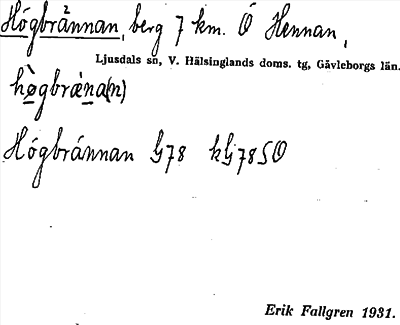 Högbrännan, berg 7 km. Ö Hennan,
Ljusdals sn, V. Hälsinglands doms. tg, Gävleborgs län.
hògbræ̀na(n)
Högbrännan G78 kG78SO
Erik Fallgren 1931.